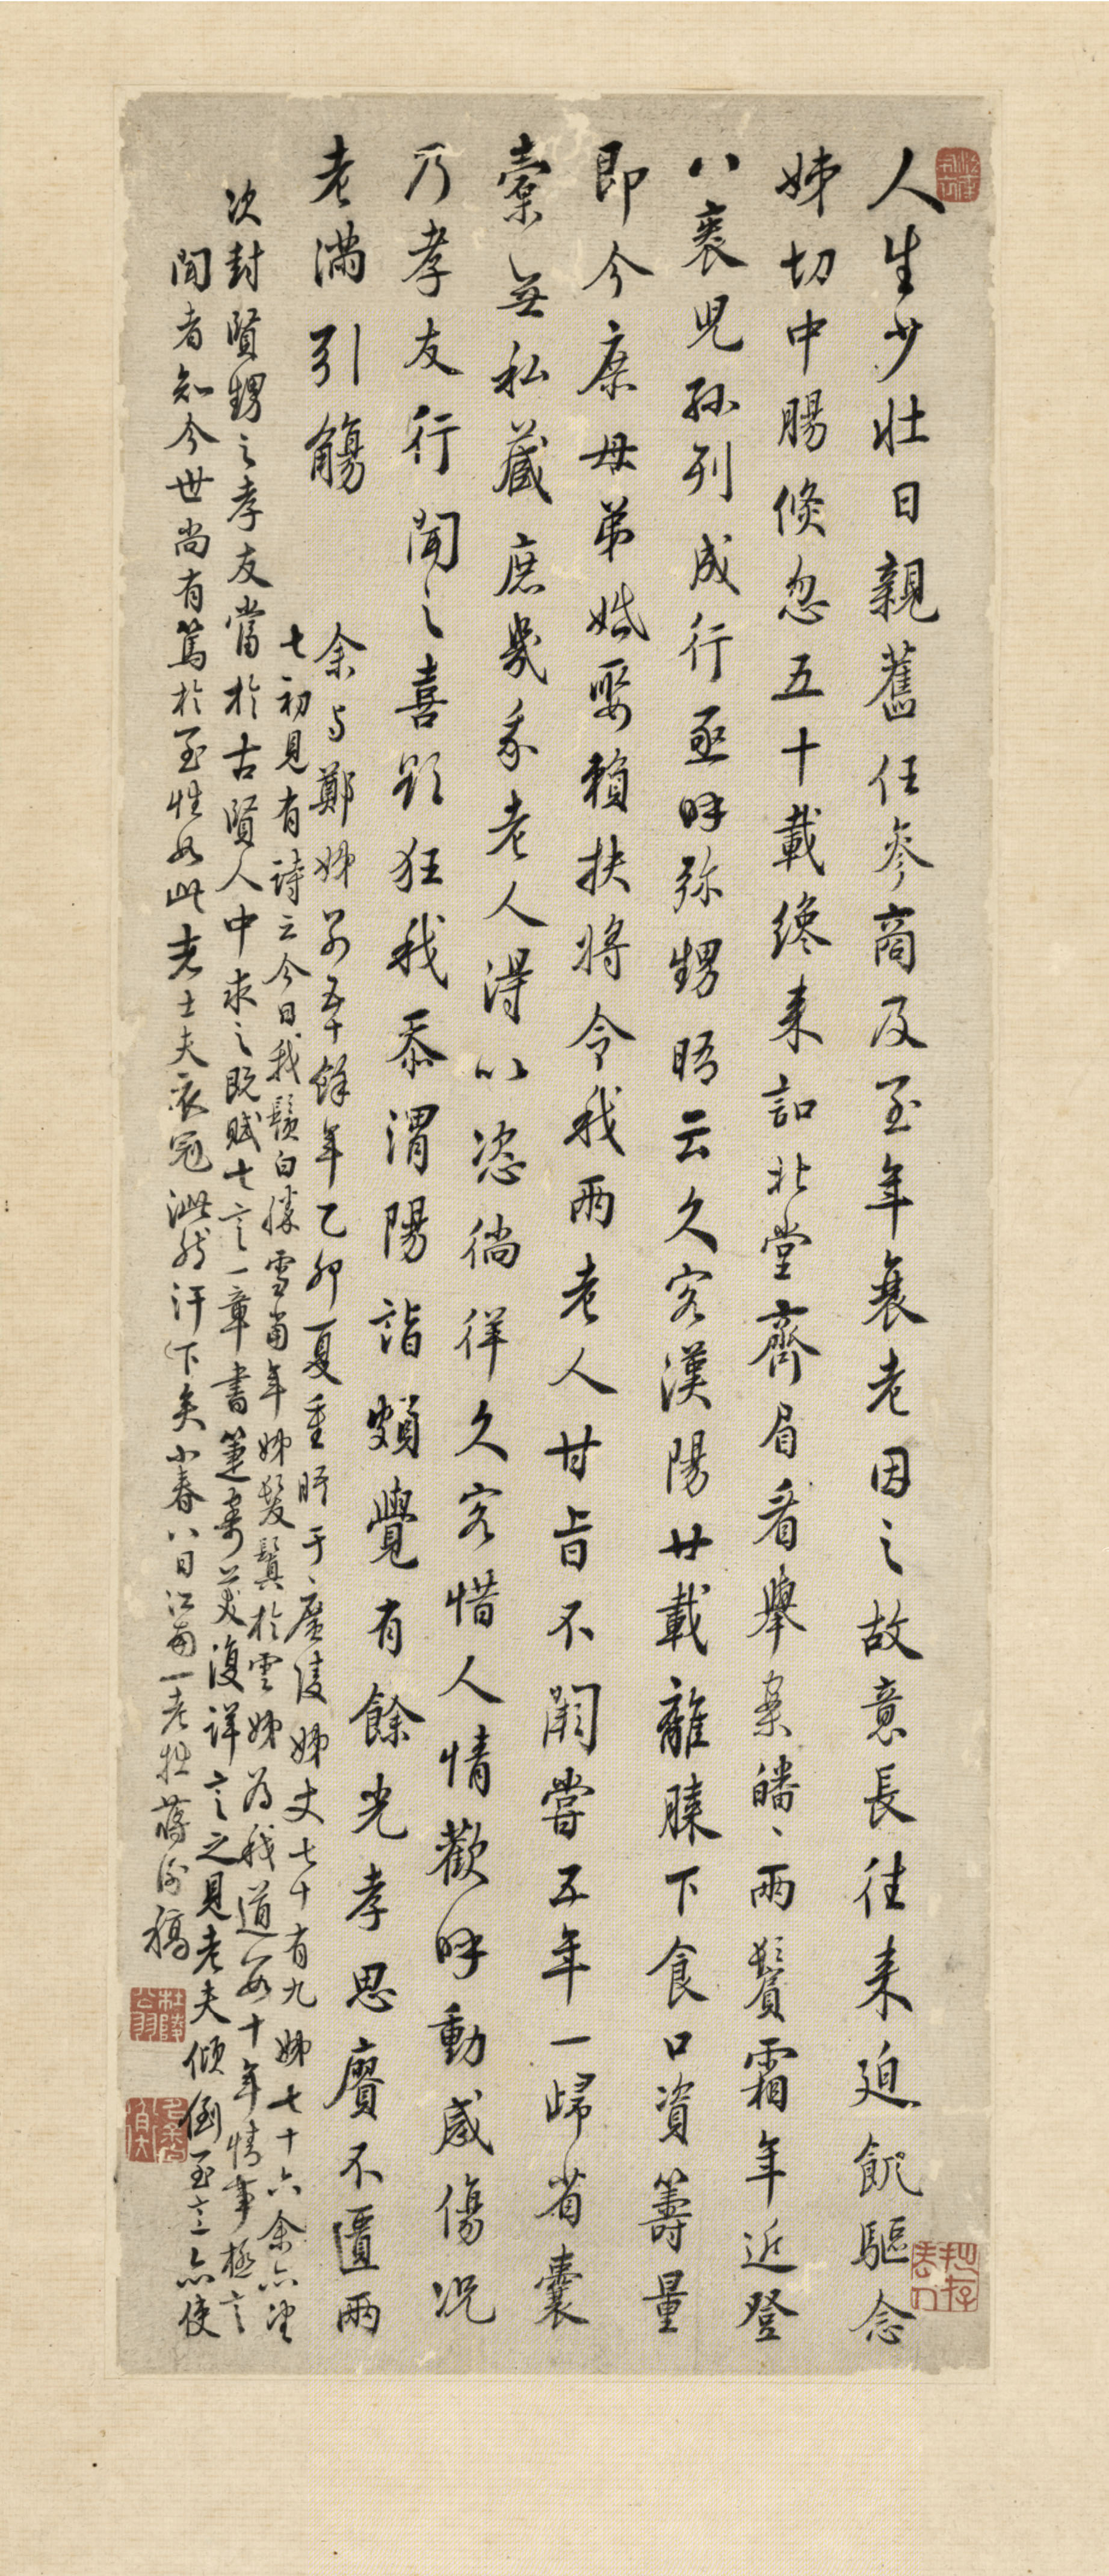 人生少壯日親舊任參商及至年衰老因之故意長往來迫飢驅念
姊切中腸倏忽五十載纔來詣北堂齊眉看舉案皤〻兩鬢霜年近登
八袠児孫列成行亟時弥甥晤云久客漢陽廿載離膝下食口資籌量
即今庶母弟婚娶賴扶將令我兩老人甘旨不闕嘗五年一歸省囊
橐無私藏庶幾我老人得以恣徜徉久客惜人情歡時動感傷況
乃孝友行聞之喜欲狂我忝渭陽詣頗覺有餘光孝思賡不匱兩
老滿引觴
余与鄭姊別五十餘年乙卯夏重晤于廣陵姊丈七十有九姊七十六余亦望
七初見有詩云今日我鬚白勝雪當年姊髮鬒於雲姊為我道數十年情事極言
次封賢甥之孝友當於古賢人中求之既賦七言一章書箑寄美復詳言之見老夫傾倒至言亦使
聞者知今世尚有篤於至性如此者士夫衣冠泚然汗下矣小春八日江南一老牧蔣 稿
杜陵
公羽